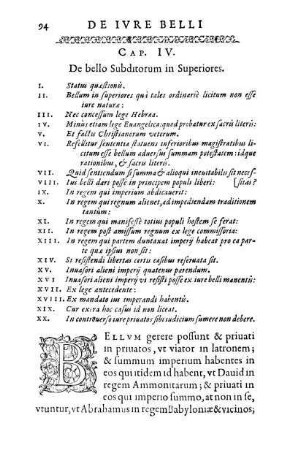 94 DE IVRE BELLI
CAP. IV.
De bello Subditorum in Superiores.
I. Status quæstionis.
II. Bellum in superiores qua tales ordinariè licitum non esse
iure naturæ:
III. Nec concessum lege Hebræa.
IV. Minus etiam lege Euangelica, quod probatur ex sacris literis:
V. Et factis Christianorum veterum.
VI. Refellitur sententia statuens inferioribus magistratibus li-
citum esse bellum aduersus summam potestatem: idque
rationibus, & sacris literis.
VII. Quid sentiendum si summa & alioqui ineuitabilis sit necess-
VIII. Ius belli dari posse in principem populi liberi: [sitas?
IX. In regem qui imperium abdicauerit:
X. In regem qui regnum alienet, ad impediendam traditionem
tantum:
XI. In regem qui manifestè totius populi hostem se ferat:
XII. In regem post amissum regnum ex lege commissoria:
XIII. In regem qui partem duntaxat imperij habeat pro ea par-
te qua ipsius non sit:
XIV. Si resistendi libertas certis casibus reseruata sit.
XV. Inuasori alieni imperij quatenus parendum.
XVI Inuasori alieni imperij vi resisti posse ex iure belli manentis:
XVII. Ex lege antecedente:
XVIII. Ex mandato ius imperandi habentis.
XIX. Cur extra hos casus id non liceat.
XX. In controuerso iure priuatos sibi iudicium sumere non debere.
BELLVM gerere possunt & priuati
in priuatos, vt viator in latronem;
& summum imperium habentes in
eos qui itidem id habent, vt Dauid in
regem Ammonitarum; & priuati in
eos qui imperio summo, at non in se,
vtuntur, vt Abrahamus in regem Babyloniæ & vicinos;